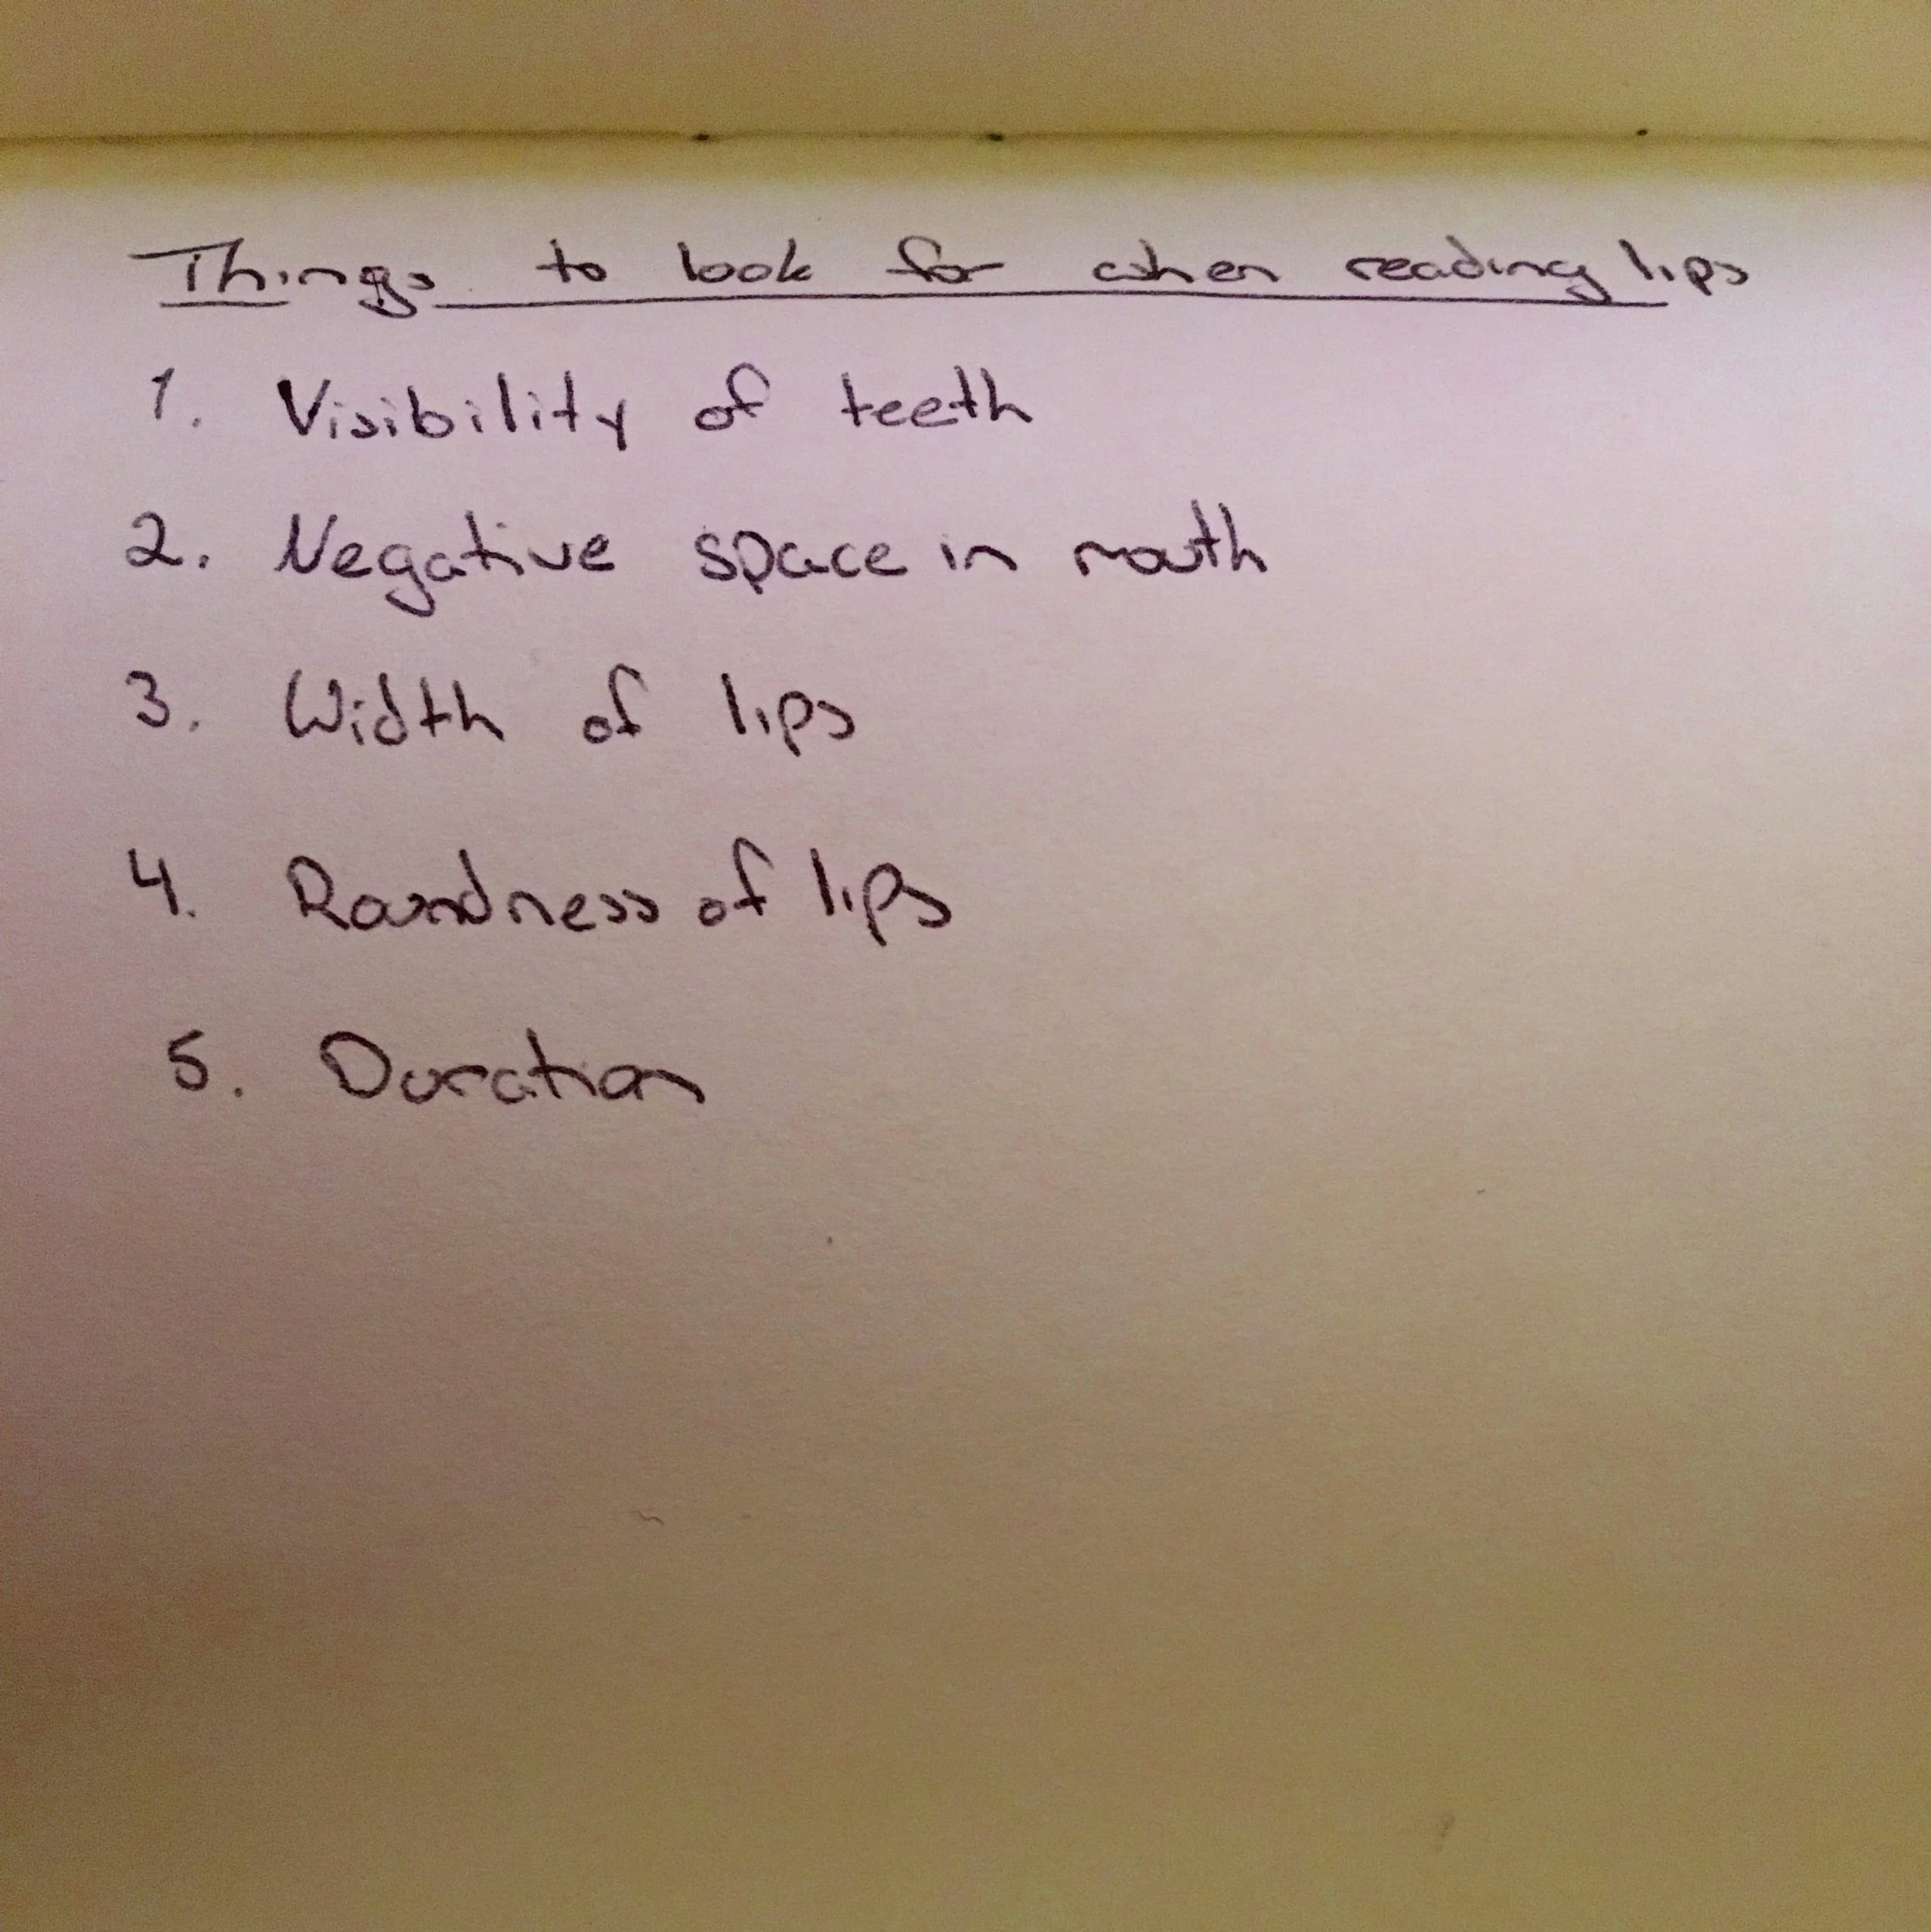 Things to look for when reading lips
1. Visibility of teeth
2. Negative space in mouth
3. Width of lips
4. Roundness of lips
5. Duration